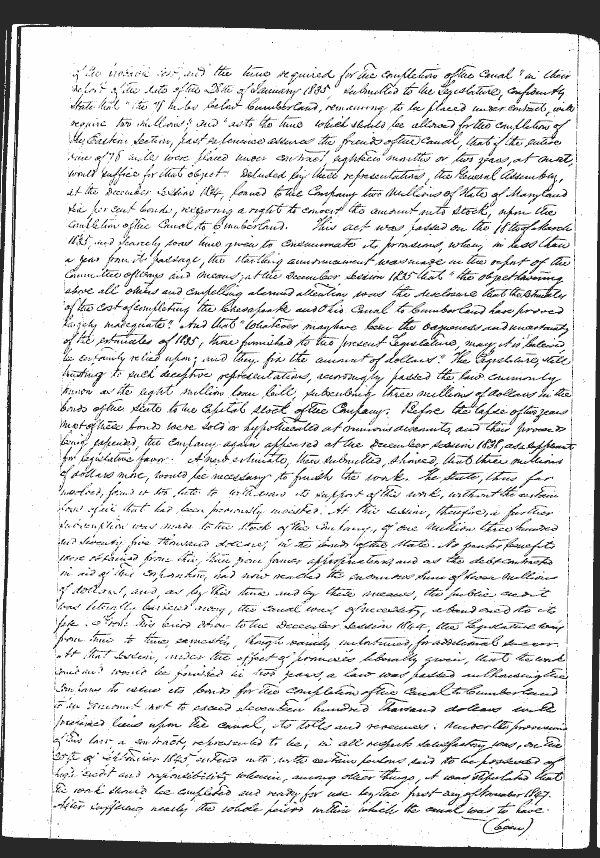 of the cost, and the time required for the completion of the Canal" in their
report of the date of the of January 1835 submitted to the Legislature, confidently
state that "the 78 miles below Cumberland, remaining to be placed under contract, will
require two millions"; and "as to the time which should be allowed for the completion of
the Eastern section, past experience assures the friends of the Canal, that if the entire
line of 78 miles were placed under contract eighteen months or two years, at most,
would suffice for that object." Deluded by these representations, the General Assembly,
at the December Session 1834, loaned to the Company two Millions of State of Maryland
Six per cent bonds, reserving a right to convert the amount into stock, upon the
completion of the Canal to Cumberland. This act was passed on the 18th of March
1835, and scarcely was time given to consummate its provisions, when, in less than
a year from its passage, the startling announcement was made in the report of the
Committee of ways and means, at the December Session 1835 that "the object having
above all others and compelling alarmed attention was the disclosure that the estimates
of the cost of completing the Chesapeake and Ohio Canal to Cumberland have proved
largely inadequate". And that "Whatever may have been the vagueness and uncertainty
of the estimates of 1835, those furnished to the present Legislature, may, it is believed
be certainly relied upon, and they fix the amount of dollars". The Legislature, still
trusting to such deceptive representations, accordingly passed the law commonly
known as the eight million loan bill, subscribing three millions of dollars in the
bonds of the State to the Capital Stock of the Company. Before the lapse of two years
most of these bonds were sold or hypothecated at ruinous discounts, and their proceeds
being expended, the company again appeared at the December session 1838, as a supplicant
for legislative favor. A new estimate, then submitted, showed, that three millions
of dollars more, would be necessary to finish the work. The State, thus far
involved, found it too late to withdraw its support of the work, without the certain
loss of all that had been previously invested. At this session, therefore, a further
subscription was made to the Stock of the Company, of one million three hundred
and seventy five thousand dollars, in the bonds of the State. No greater benefits
were obtained from this, than from former appropriations, and as the debt contracted
in aid of this Corporation, had now reached the enormous sum of seven millions
of dollars, and, as by this time and by these means, the public credit
was literally borne away, the canal was, of necessity, abandoned to its
fate. From this period down to the December Session 1844, the Legislature was,
from time to time, earnestly, though vainly importuned, for additional succor.
At that session, under the effect of promises liberally given, that the work
could and would be finished in two years, a law was passed authorizing the
Company to issue its bonds for the completion of the Canal to Cumberland
to an amount not to exceed seventeen hundred thousand dollars with
preferred liens upon the canal, its tolls and revenues. Under the provisions
of this law a contract, represented to be, in all respects satisfactory, was, on the
of September 1845 entered into, with certain persons said to be possessed of
high credit and responsibility, wherein, among other things, it was stipulated that
the work should be completed and ready for use by the first day of November 1847.
After suffering nearly the whole period within which the canal was to have
(been)